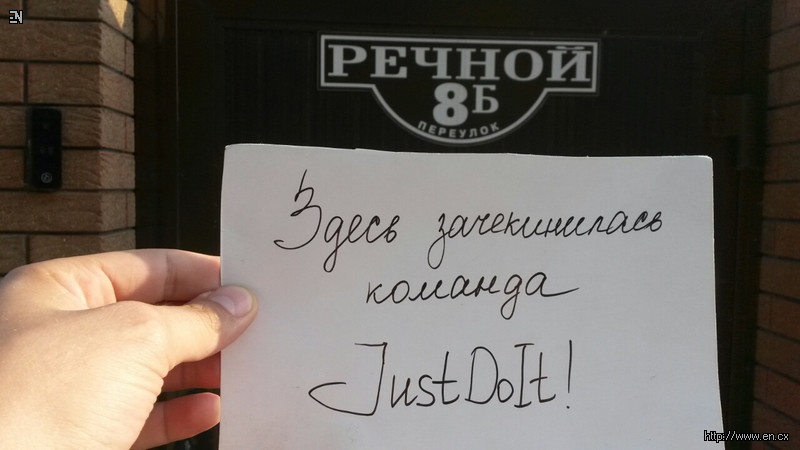 EN
РЕЧНОЙ
8Б
ПЕРЕУЛОК
Здесь зачекинилась
команда
JustDoIt!
http://www.en.cx